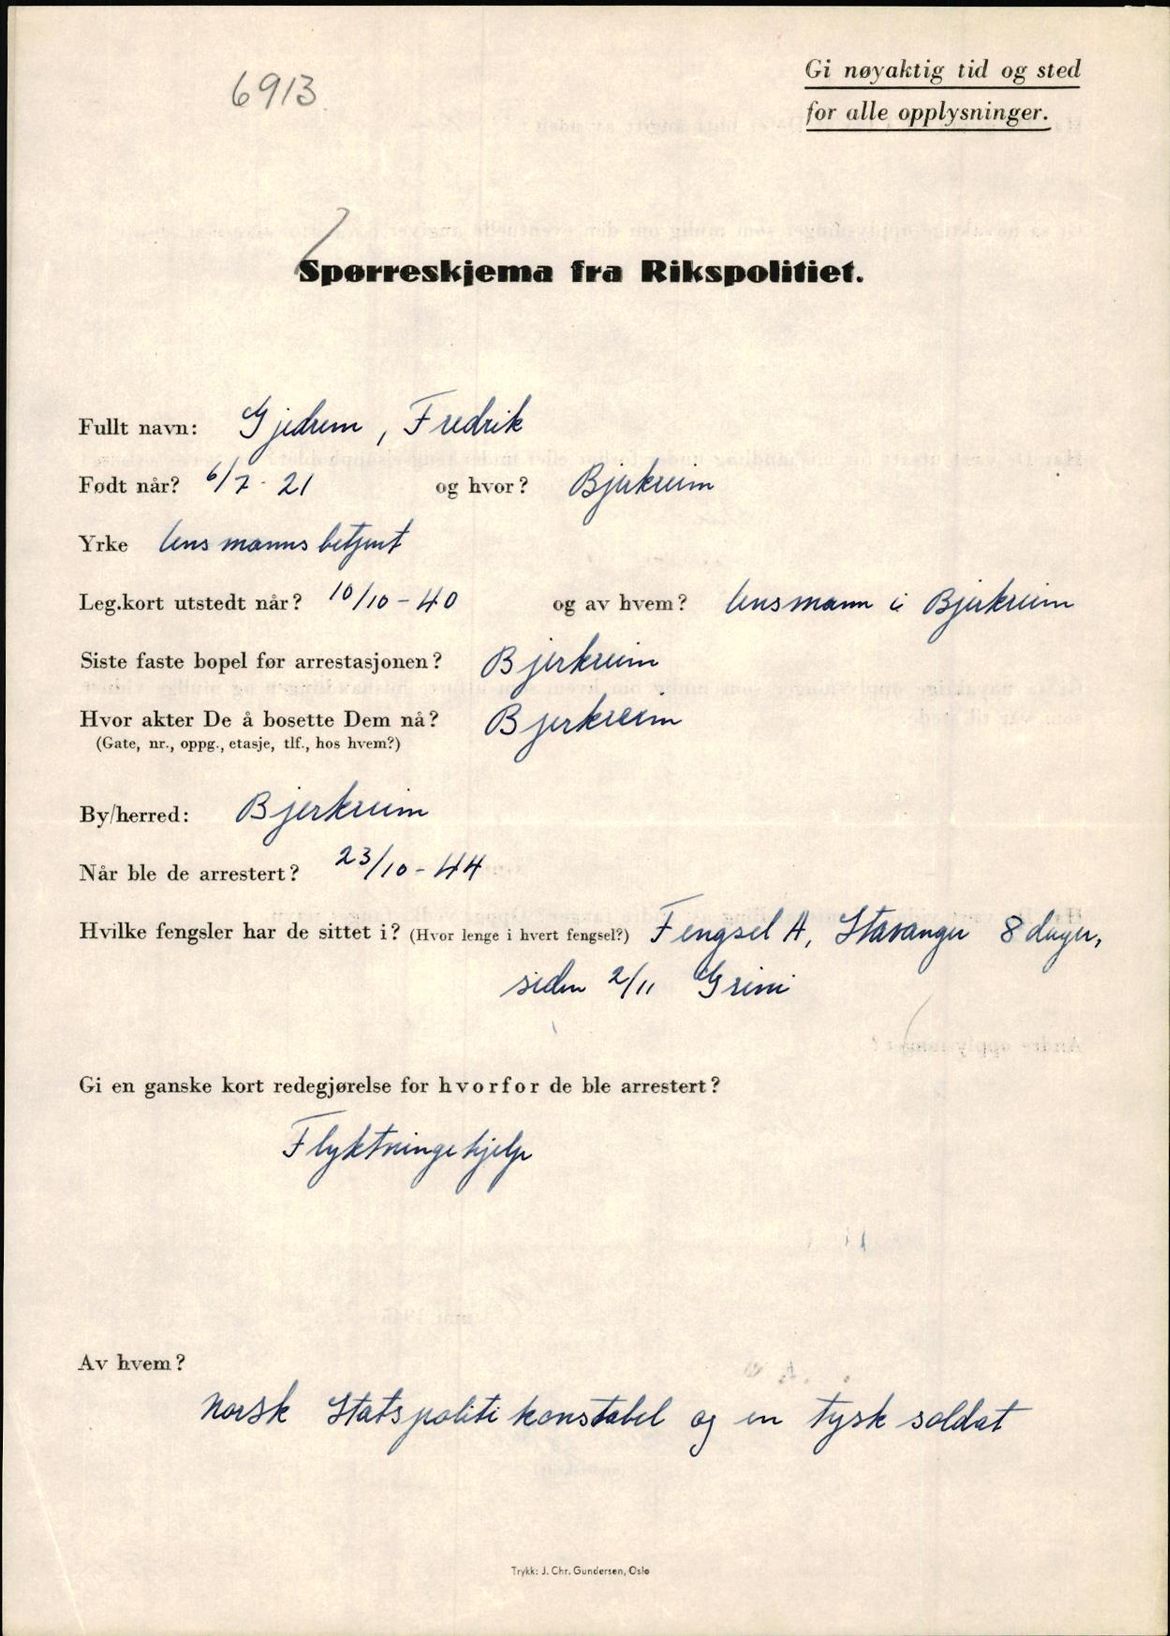 6913
Gi nøyaktig tid og sted
for alle opplysninger.
Spørreskjema fra Rikspolitiet.
Fullt navn: Gjedrem, Fredrik
Født når? 6/7-21 og hvor? Bjerkreim
Yrke lensmannsbetjent
Leg.kort utstedt når? 10/10-40 og av hvem? lensmann i Bjerkreim
Siste faste bopel før arrestasjonen? Bjerkreim
Hvor akter De å bosette Dem nå? Bjerkreim
(Gate, nr., oppg., etasje, tlf., hos hvem?)
By/herred: Bjerkreim
Når ble de arrestert? 23/10-44
Hvilke fengsler har de sittet i? (Hvor lenge i hvert fengsel?) Fengsel A, Stavanger 8 dager,
siden 2/11 Grini
Gi en ganske kort redegjørelse for hvorfor de ble arrestert?
Flyktningehjelp
Av hvem?
Norsk Statspoliti konstabel og en tysk soldat
Trykk: J. Chr. Gundersen, Oslo